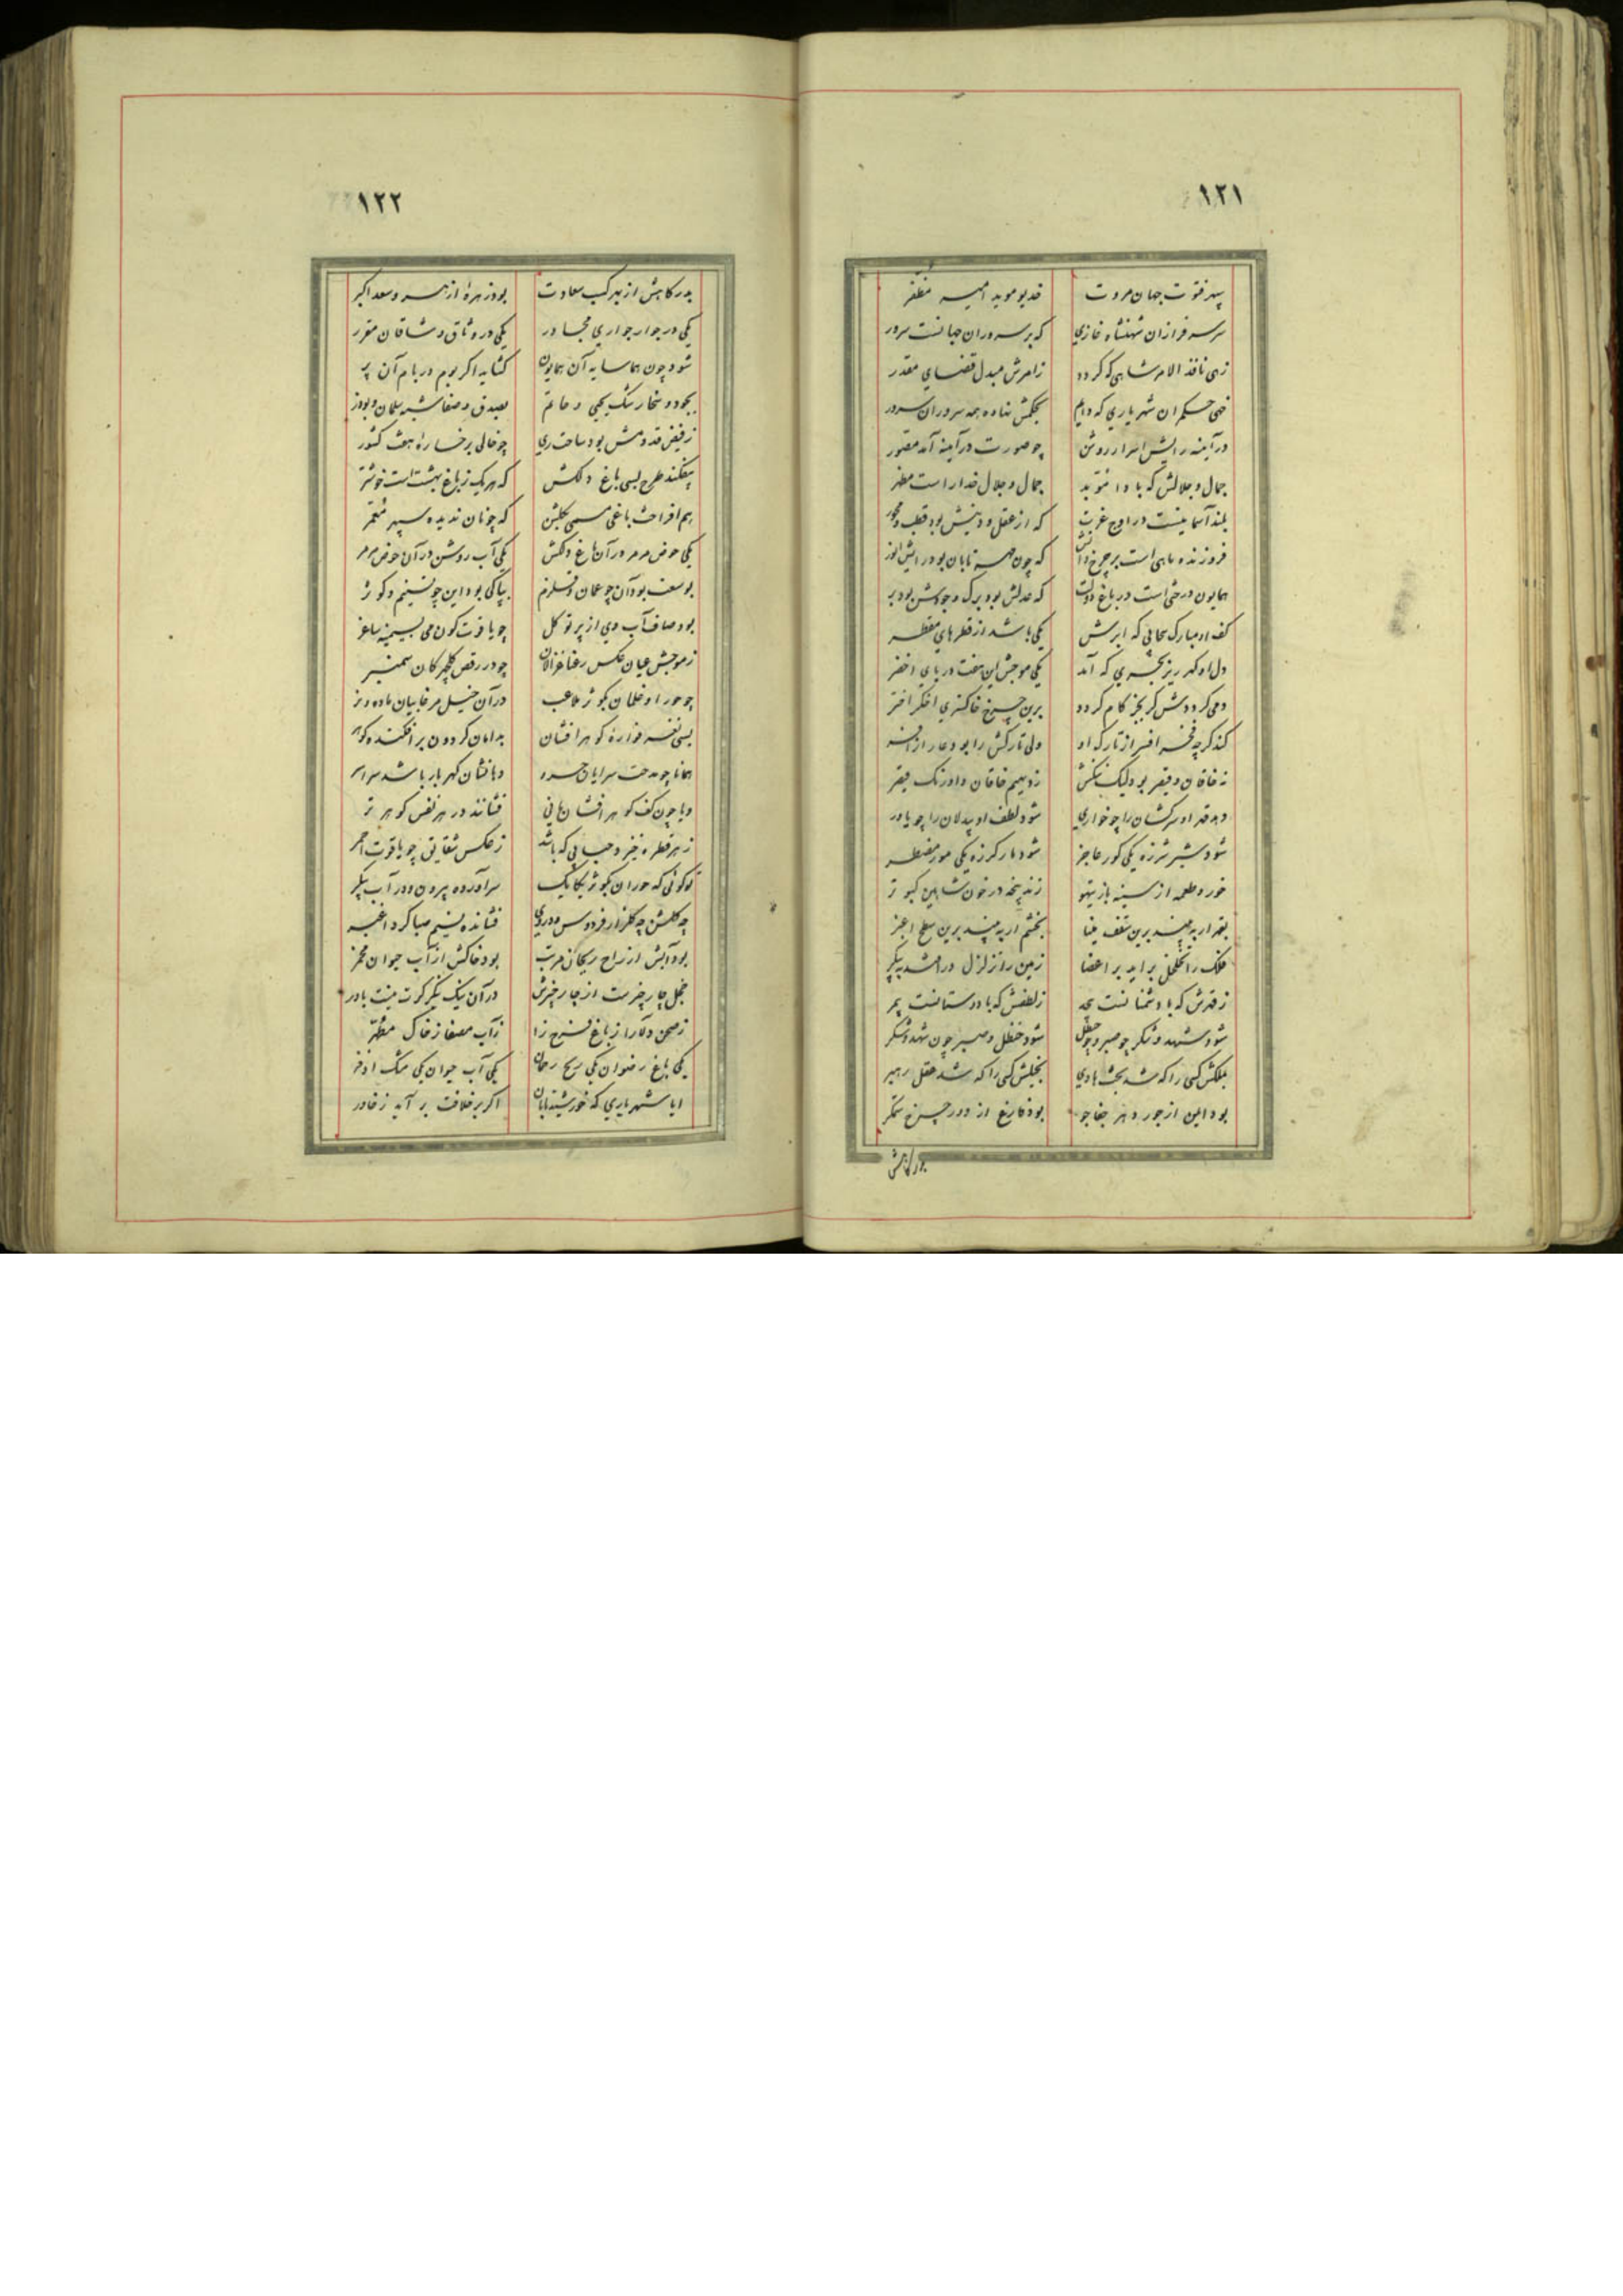 ١٢١
سپهر فتوت جهان مروت خدیو موید امیر مظفر
سر سرفرازان شهنشاه غازی که بر سروران جهانست سرور
زهی نافذ الامر شاهی که گردد ز امرش مبدل قضای مقدر
خهی حکمران شهریاری که دایم بحکمش نهاده همه سروران سر
در آینه رایش اسرار روشن چو صورت در آینه آمد مصور
جمال و جلالش که بادا موید جمال و جلال خدا را است مظهر
بلند آسمانیست در اوج عزت که از عقل و دینش بود قطب و محور
فروزنده ماهی است بر چرخ دانش که چون مهر تابان بود رایش انور
همایون درختی است در باغ دولت که عدلش بود برگ و جودش بود بر
کف او مبارک سحابی که ابرش یکی باشد از قطرهای مقطر
دل او گهر ریز بحری که آمد یکی موجش این هفت دریای اخضر
دمی گر دودش گر بجز کام گردد برین چرخ خاکستری اخگر اختر
کند گرچه فخر افسر از تارک او ولی تارکش را بود عار از افسر
نه خاقان و قیصر بود لیک ننگش ز دیهیم خاقان و اورنگ قیصر
دهد قهر او سرکشان را چو خواری شود لطف او بیدلان را چو یاور
شود شیر شرزه یکی گور عاجز شود مار گرزه یکی مور مضطر
خورد طعمه از سینه باز تیهو زند پنجه در خون شاهین کبوتر
بقهر ار ببیند برین سقف مینا بخشم ار ببیند برین سطح اغبر
فلک را تخلخل برآید بر اعضا زمین را تزلزل در افتد به پیکر
ز قهرش که با دشمنانست بیحد ز لطفش که با دوستانست بیمر
شود شهد و شکر چو صبر و چو حنظل شود حنظل و صبر چون شهد و شکر
بملکش کسی را که شد بخت هادی بخیلش کسی را که شد عقل رهبر
بود ایمن از جور دهر جفاجو بود فارغ از دور چرخ ستمگر
بدرگاهش
١٢٢
بدرگاهش از بهر کسب سعادت بود زهره ازهر و سعد اکبر
یکی در جوار جواری مجاور یکی در وثاق وشاقان مقرر
شود چون هما سایه آن همایون گشاید اگر بوم در بام آن پر
بجود و سخا رشک یحیی و حاتم بصدق و صفا شبه سلمان و بوذر
ز فیض قدومش بود ساحت ری چو خالی بر خساره هفت کشور
بیفکند طرح بسی باغ دلکش که هر یک ز باغ بهشت است خوشتر
بهم افراخت باغی مسمی بگلشن که چونان ندیده سپهر معمر
یکی حوض مرمر در آن باغ دلکش یکی آب روشن در آن حوض مرمر
بوسعت بود آن چو عمان و قلزم بپاکی بود این چو تسنیم و کوثر
بود صاف آب وی از پرتو گل چو یاقوت گون می بسیمینه ساغر
ز موجش عیان عکس رعنا غزالان چو در رقص گلچهرگان سمنبر
چو حور او غلمان بکوثر ملاعب در آن خیل مرغابیان ماده و نر
بسی نغز فواره گوهر افشان بدامان گردون بر افکنده گوهر
همانا چو مدحت سرایان خسرو دهانشان گهربار باشد سراسر
و یا چون کف گوهر افشان بانی فشانند در هر نفس گوهر تر
ز هر قطره خیزد حبابی که باشد ز عکس شقایق چو یاقوت احمر
تو گوئی که حوران بکوثر یکایک سر آورده بیرون و در آب پیکر
چه گلشن چه گلزار فردوس در وی فشانده نسیم صبا گرد اغبر
بود آبش از راح ریحان مرتب بود خاکش از آب حیوان مخمر
خجل چار چیزست از چار چیزش در آن نیک بنگر گرت نیست باور
ز صحن دلارا ز باغ فرح زا ز آب مصفا ز خاک مطهر
یکی باغ رضوان یکی ریح ریحان یکی آب حیوان یکی مشک اذفر
ایا شهریاری که خورشید تابان اگر بر خلافت بر آید ز خاور